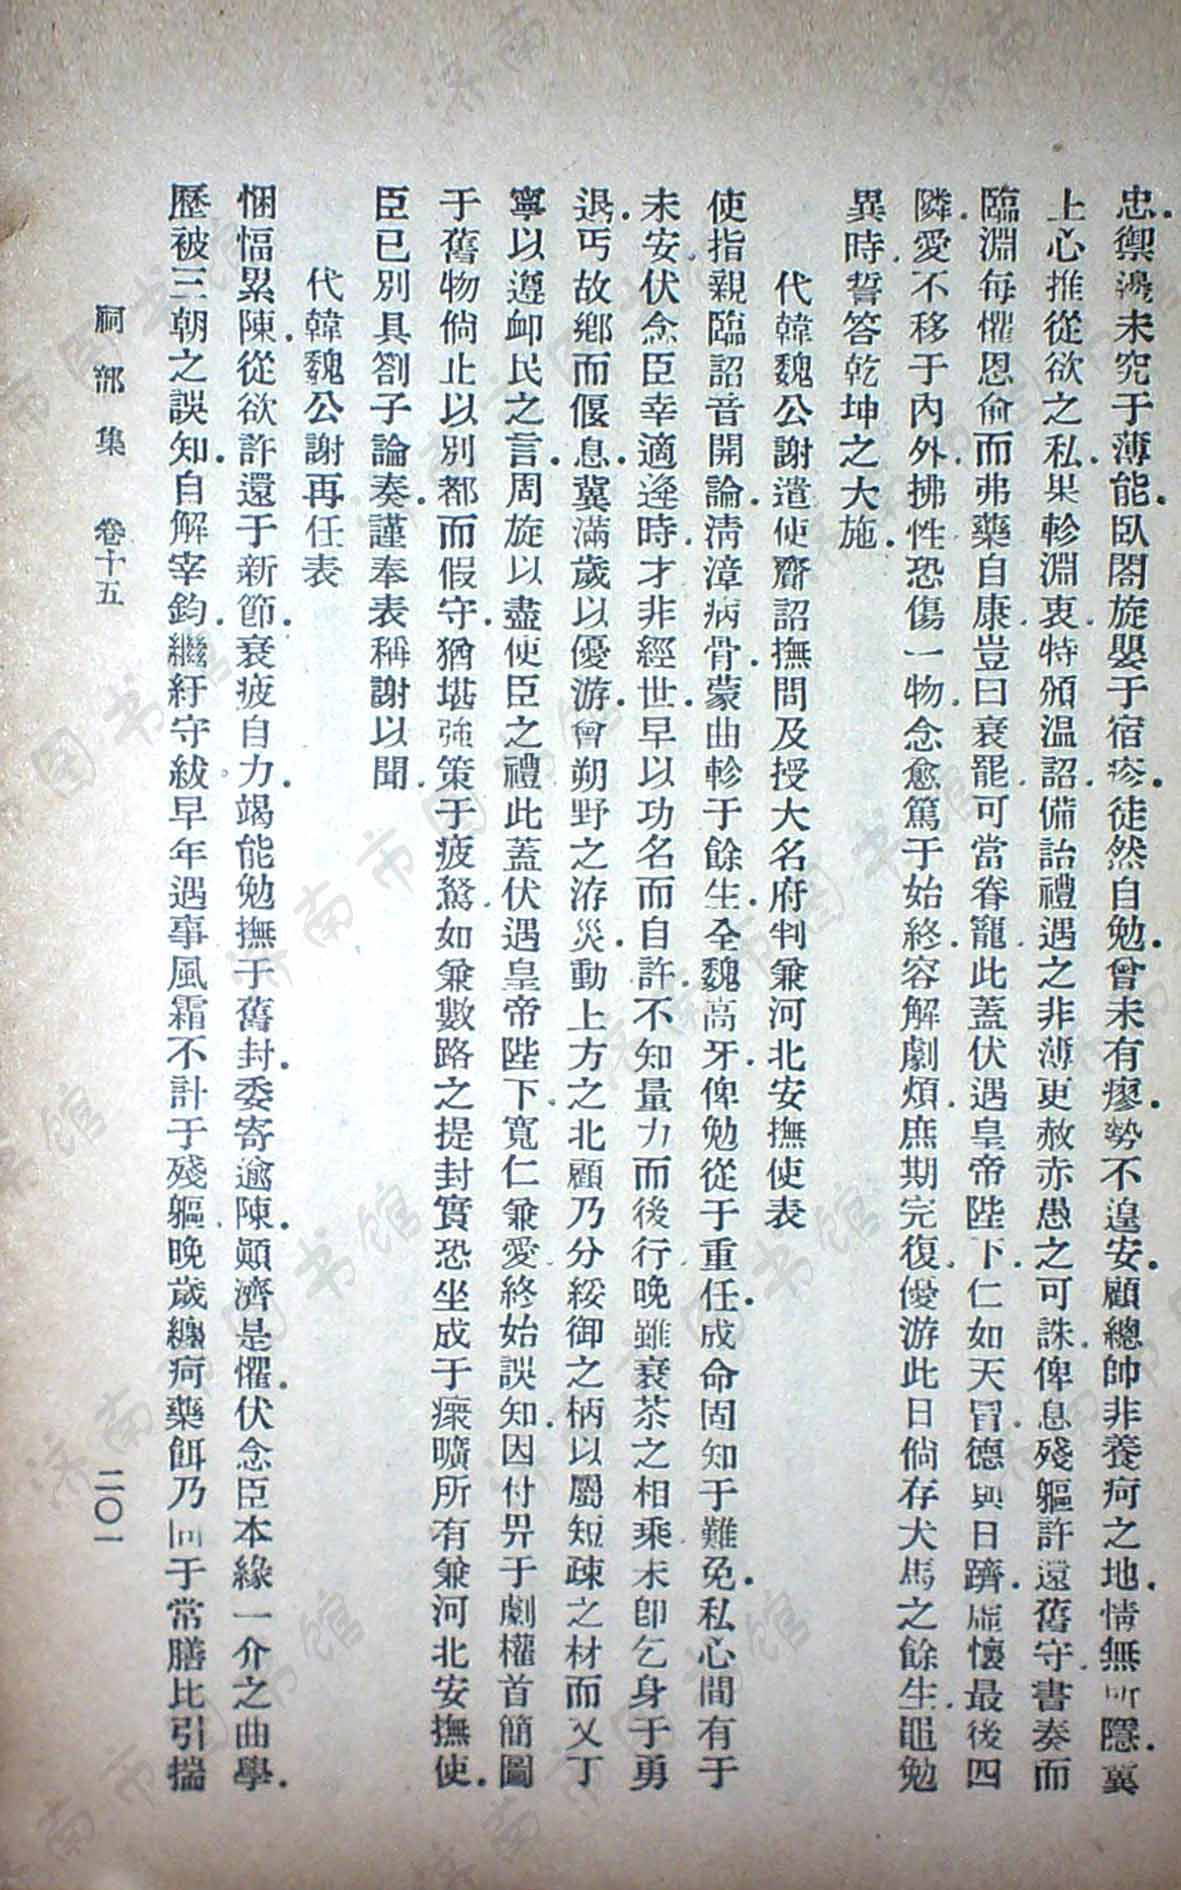 忠。禦邊未究于薄能。臥閤旋嬰于宿疹。徒然自勉。曾未有瘳。勢不遑安。顧總帥非養疴之地。情無所隱。冀
上心推從欲之私。果軫淵衷。特頒溫詔。備詒禮遇之非薄。更赦赤愚之可誅。俾息殘軀。許還舊守。書奏而
臨淵每懼。恩俞而弗藥自康。豈曰衰罷。可當眷寵。此蓋伏遇皇帝陛下。仁如天冒。德與日躋。虛懷最後四
隣。愛不移于內外。拂性恐傷一物。念愈篤于始終。容解劇煩。庶期完復。優游此日。倘存犬馬之餘生。黽勉
異時。誓答乾坤之大施。
代韓魏公謝遣使齎詔撫問及授大名府判兼河北安撫使表
使指親臨。詔音開諭。淸漳病骨。蒙曲軫于餘生。全魏高牙。俾勉從于重任。成命固知于難免。私心間有于
未安。伏念臣幸適逢時。才非經世。早以功名而自許。不知量力而後行。晚雖衰苶之相乘。未卽乞身于勇
退。丐故鄕而偃息。冀滿歲以優游。會朔野之洊災。動上方之北顧。乃分綏御之柄。以屬短疎之材。而又丁
寧以遵卹民之言。周旋以盡使臣之禮。此蓋伏遇皇帝陛下。寬仁兼愛。終始誤知。因付畀于劇權。首簡圖
于舊物。倘止以別都而假守。猶堪強策于疲駑。如兼數路之提封。實恐坐成于瘝曠。所有兼河北安撫使。
臣已別具劄子論奏。謹奉表稱謝以聞。
代韓魏公謝再任表
悃愊累陳。從欲許還于新節。衰疲自力。竭能勉撫于舊封。委寄逾陳。顚濟是懼。伏念臣本緣一介之曲學。
歷被三朝之誤知。自解宰鈞。繼紆守紱。早年遇事。風霜不計于殘軀。晚歲纏疴。藥餌乃同于常膳。比引揣
祠部集 卷十五 二〇一